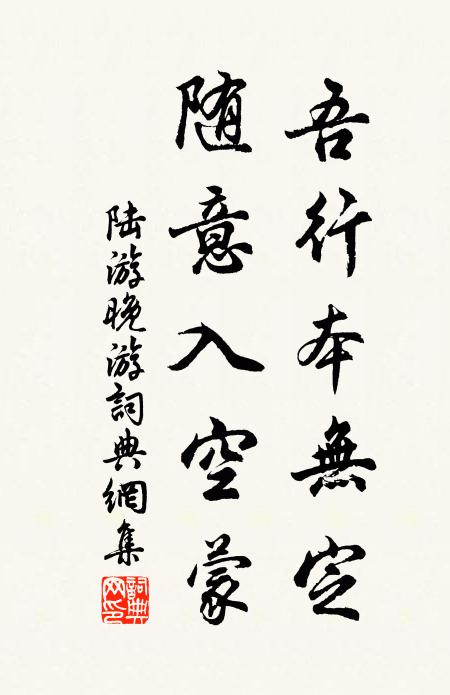 吾行本無定
随意入空蒙
陆游晚游詞典網集
詞典网印